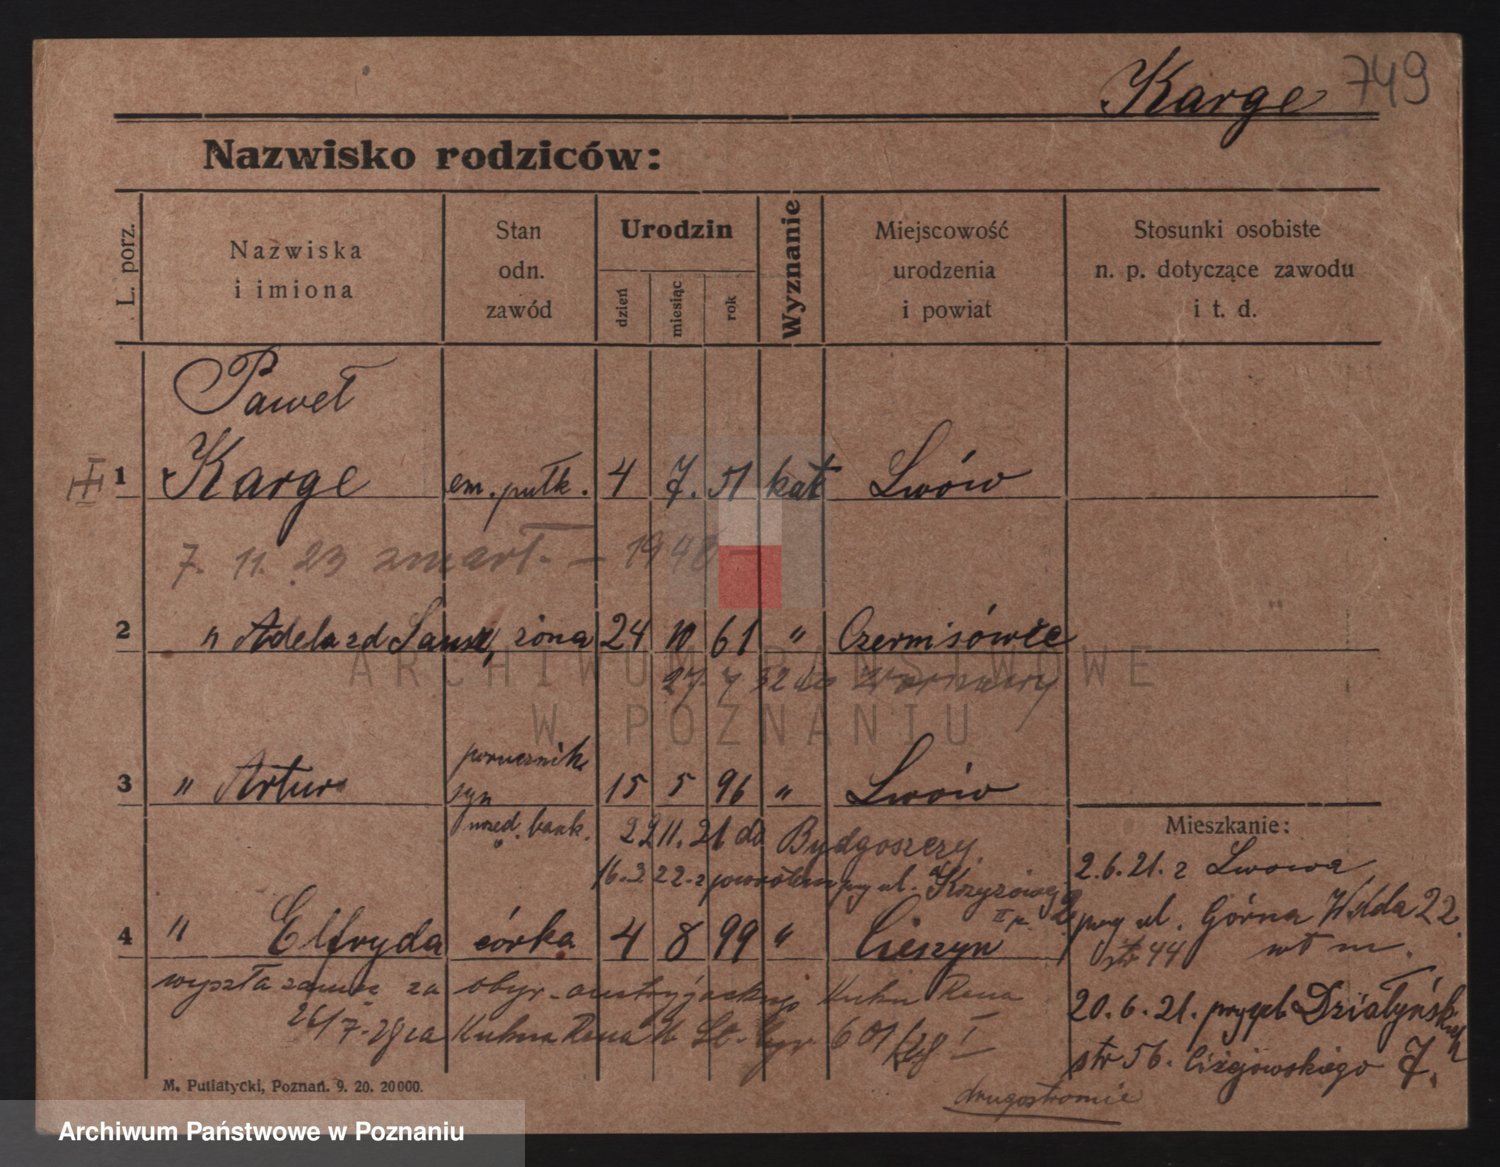 Karge 749
Nazwisko rodziców:
L. porz.
Nazwiska i imiona
Stan odn. zawód
Urodzin
dzień
miesiąc
rok
Wyznanie
Miejscowość urodzenia i powiat
Stosunki osobiste n. p. dotyczące zawodu i t. d.
Paweł
1 Karge em. pułk. 4 7. 51 kat Lwów
7. 11. 23 zmarł. – 1940 –
2 " Adela zd żona 24 10 61 " Czerniśówce
27. 7 32 do Warszawy
porucznik
3 " Artur syn 15 5 96 " Lwów
urzęd. bank. 22 11. 21 do Bydgoszczy
Mieszkanie:
16. 2 22. z powrotem przy ul. Krzyżowej
2. 6. 21. z Lwowa
4 " Elfryda córka 4 8 99 " Cieszyn
przy ul. Górna Wilda 22
str 44
wyszła zamąż za obyw. austryjackiego Kuhn Rena
20. 6. 21. przy ul. Działyńskich
26/7. 28 za Kuhna Rena 601/28 I
str 56. 7.
drugostronnie
M. Putiatycki, Poznań. 9. 20. 20000.
ARCHIWUM PAŃSTWOWE
W POZNANIU
Archiwum Państwowe w Poznaniu